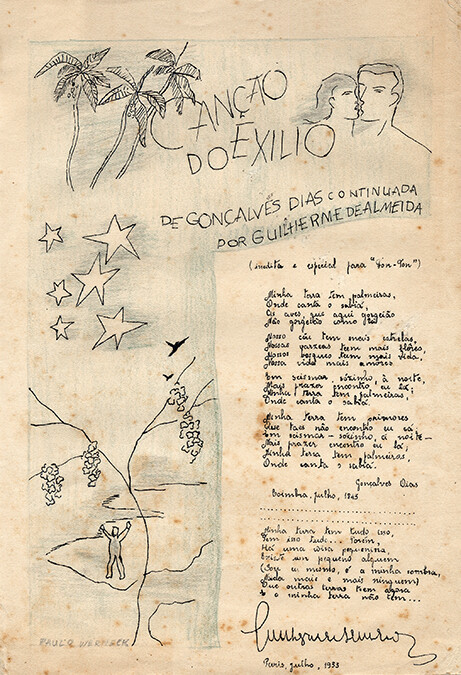 CANÇÃO
DO EXILIO
DE GONÇALVES DIAS CONTINUADA
POR GUILHERME DE ALMEIDA
(inedita e especial para "Fon-Fon")
Minha terra tem palmeiras,
Onde canta o sabiá,
As aves, que aqui gorgeião
Não gorgeião como lá.
Nosso céu tem mais estrelas,
Nossas varzeas tem mais flores,
Nossos bosques tem mais vida,
Nossa vida mais amores
Em scismar, sózinho, à noite,
Mais prazer encontro eu lá;
Minha terra tem palmeiras,
Onde canta o sabiá.
Minha terra tem primores,
Que taes não encontro eu cá;
Em scismar - sozinho, à noite -
Mais prazer encontro eu lá,
Minha terra tem palmeiras,
Onde canta o sabiá.
Gonçalves Dias
Coimbra, julho, 1843
Minha terra tem tudo isso,
Tem isso tudo... Porém
Há uma coisa pequenina,
Existe um pequeno alguem
(Sou eu mesmo, é a minha sombra,
Nada mais e mais ninguem)
Que outras terras tem agora
E a minha terra não tem...
Paris, julho, 1933
PAULO WERNECK